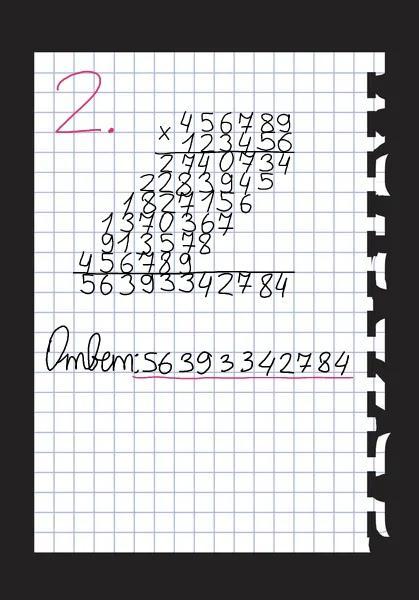 2.
× 456789
123456
2740734
2283945
1827156
1370367
913578
456789
56393342784
Ответ: 56393342784